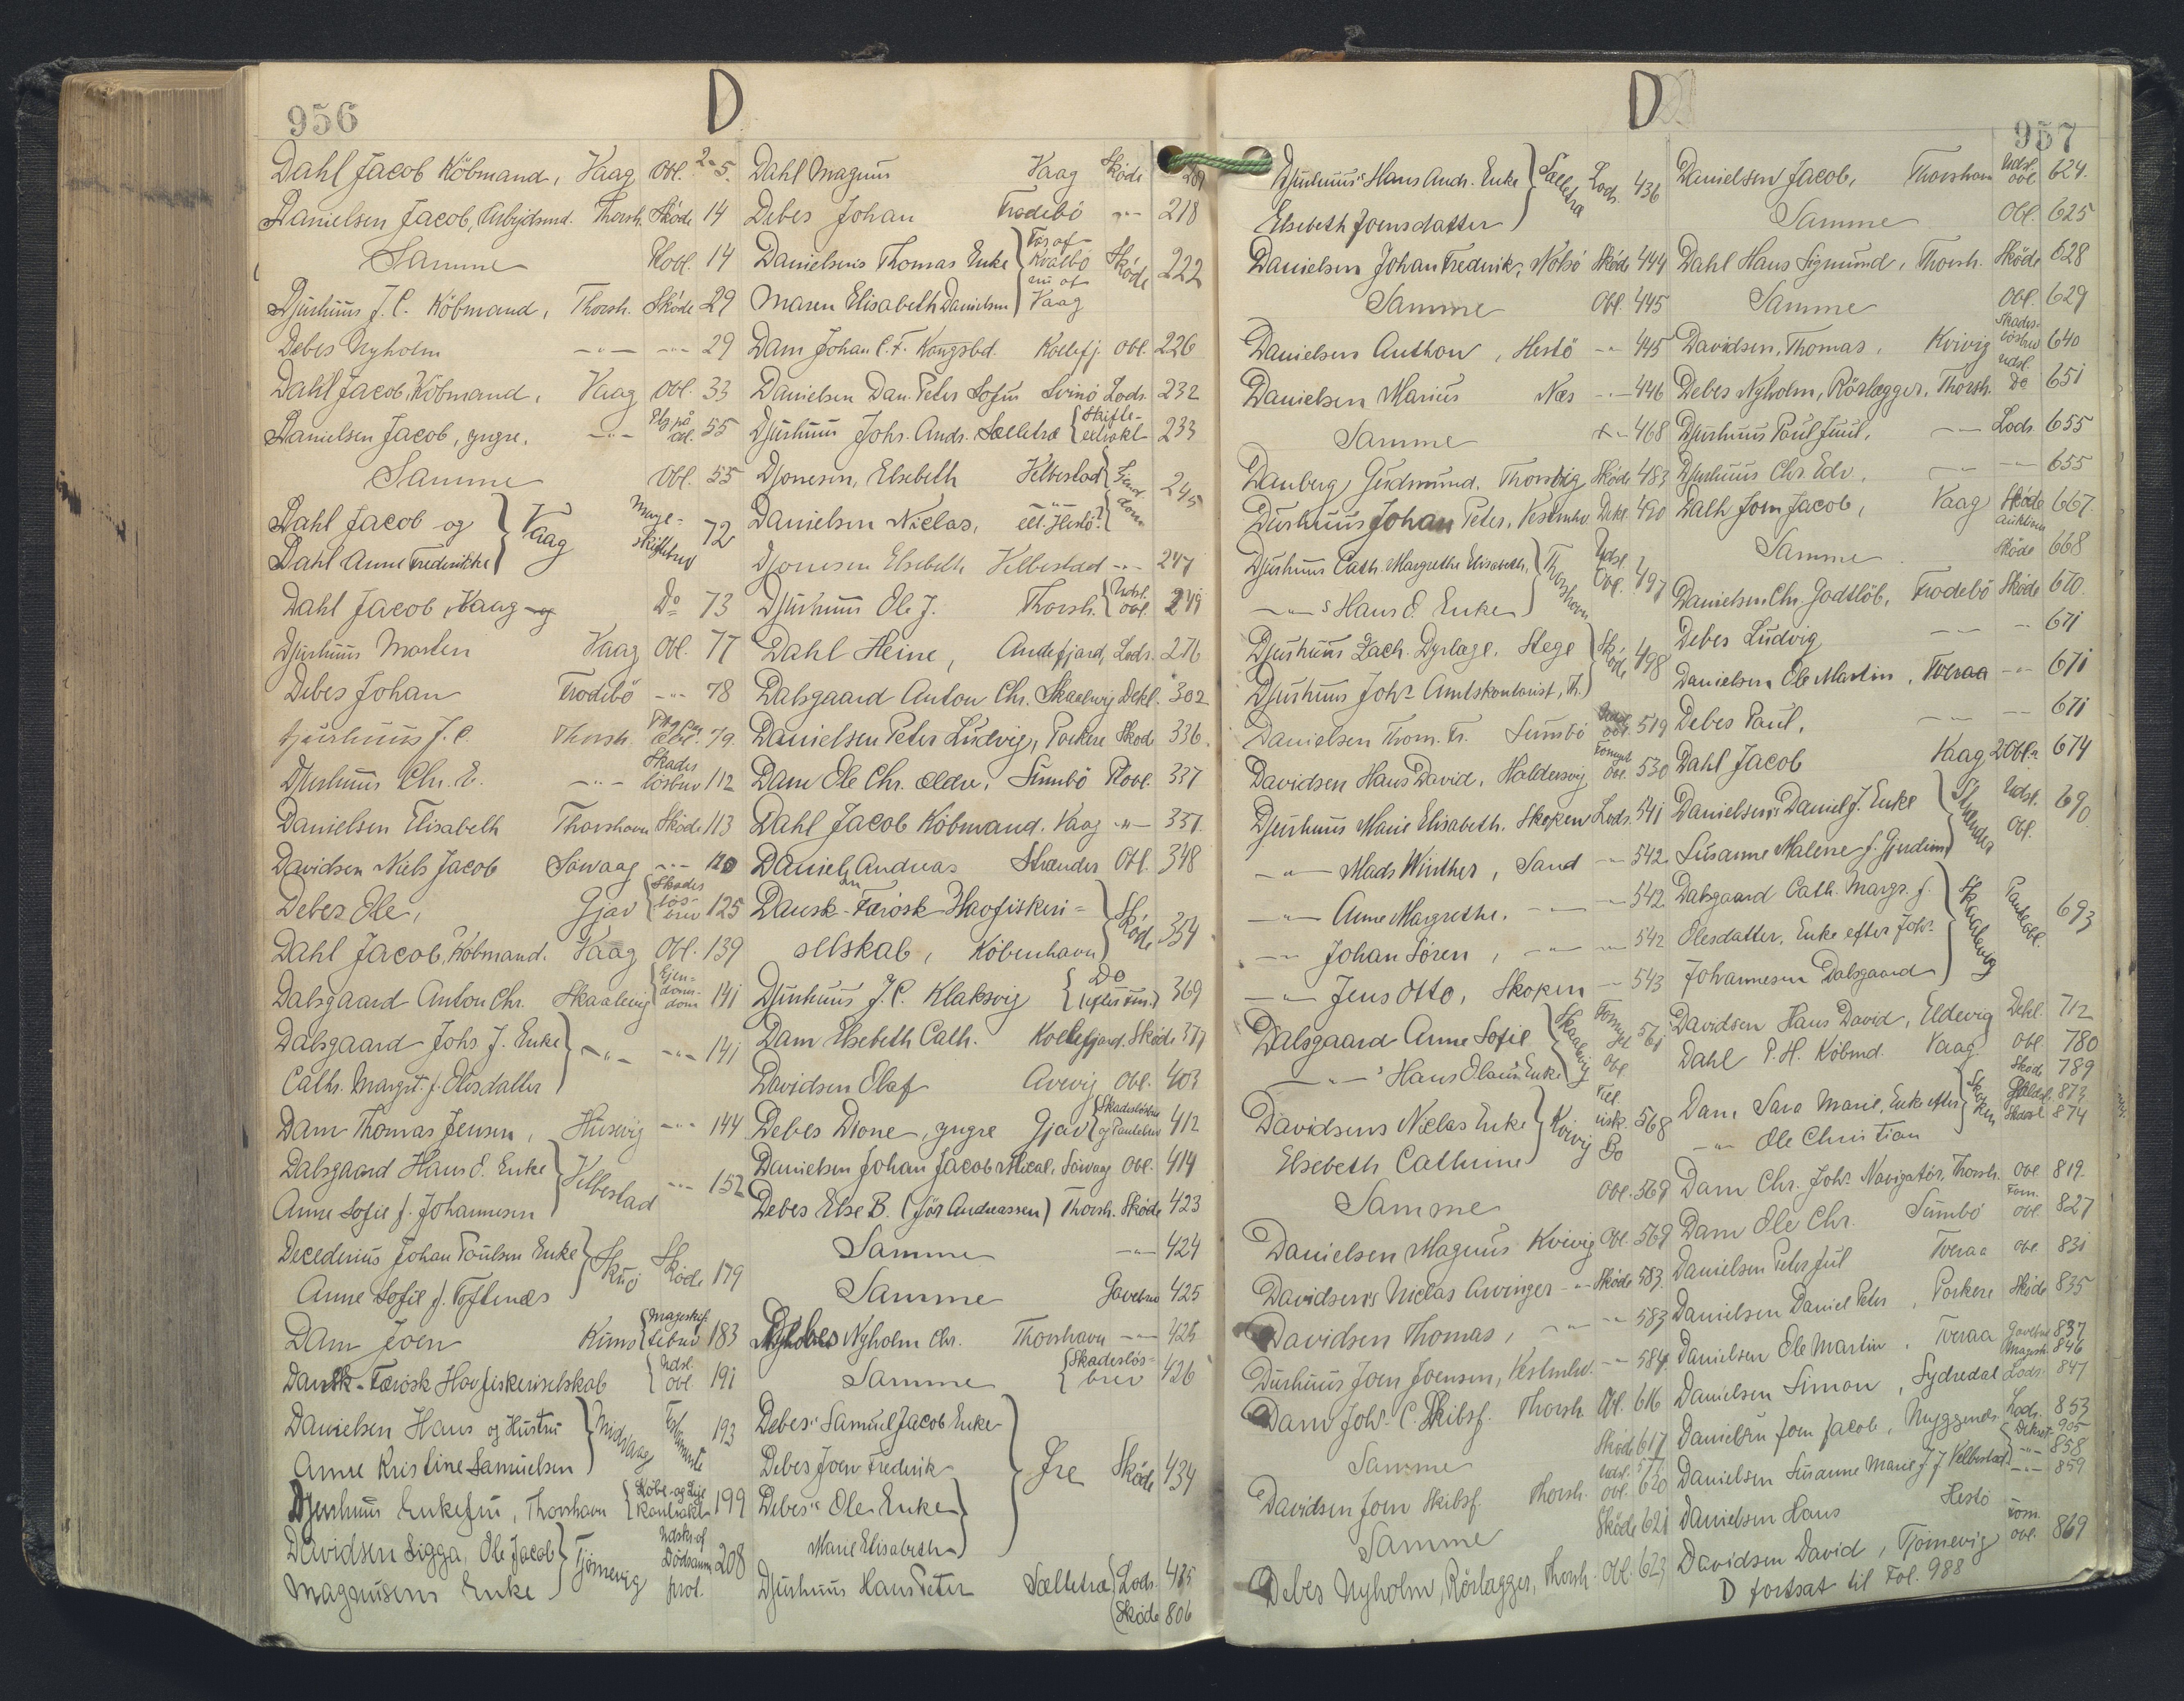 956
D
Dahl Jacob Köbmand, Vaag Obl. 2-5.
Danielsen Jacob, Arbejdsmd. Thorsh. Sköde 14
Samme Pobl. 14
Djurhuus J. C. Köbmand, Thorsh. Sköde 29
Debes Nyholm -"- -"- 29
Dahl Jacob, Köbmand, Vaag Obl. 33
Danielsen Jacob, yngre, -"- obl. 55
Samme Obl. 55
Dahl Jacob og } Vaag 72
Dahl Anne Frederikke
Dahl Jacob, Vaag og Do 73
Djurhuus Morten Vaag Obl. 77
Debes Johan Frodebö -"- 78
Djurhuus J. C. Thorsh. 79
Djurhuus Chr. E. -"- Skadeslösbrev 112
Danielsen Elisabeth Thorshavn Sköde 113
Davidsen Niels Jacob Sörvaag -"- 120
Debes Ole, Gjov { Skadeslösbrev 125
Dahl Jacob, Köbmand. Vaag Obl. 139
Dalsgaard Anton Chr. Skaalevig { Ejendomsdom 141
Dalsgaard Johs J. Enke } -"- -"- 141
Cath. Margr. f. Olesdatter
Dam Thomas Jensen, Husevig -"- 144
Dalsgaard Hans O. Enke } Velbestad -"- 152
Anne Sofie f. Johannesen
Decederius Johan Poulsen Enke } Skuö Sköde 179
Anne Sofie f. Toftenæs
Dam Joen Kuns { Mageskiftebrev 183
Dansk-Færösk Havfiskeriselskab { Udsl. obl. 191
Danielsen Hans og Hustru } Midvaag 193
Anne Kristine Samuelsen
Djurhuus Enkefru, Thorshavn { Köbe- og Leje Kontrakt 199
Davidsen Sigga, Ole Jacob } Tjörnevig Udskr. af Dödsanm. prot. 208
Magnusens Enke
Dahl Magnus Vaag Sköde 209
Debes Johan Frodebö -"- 218
Danielsens Thomas Enke } För af Kvalbö nu af Vaag Sköde 222
Maren Elisabeth Danielsen
Dam Johan C. F. Kongsbd. Kollefj. Obl. 226
Danielsen Dan. Peter Sofus Svinö Lods. 232
Djurhuus Johs. Andr. Selletræ { Skifteextrakt 233
Djonesen, Elsebeth Velbestad { Ejendom 245
Danielsen Niclas, ell. Hestö?
Djonesen Elsebeth Velbestad -"- 247
Djurhuus Ole J. Thorsh. { Udsl. obl. 249
Dahl Heine, Andefjord, Lods. 276
Dalsgaard Anton Chr. Skaalevig Dekl. 302
Danielsen Peter Ludvig, Porkere Sköd 336
Dam Ole Chr. ældre, Sumbö Pobl. 337
Dahl Jacob Köbmand. Vaag -"- 337
Daniel Andreas Strænder Obl. 348
Dansk-Færösk Havfiskeri- } Sköde 354
selskab, København
Djurhuus J. C. Klaksvig { Do 369
Dam Elsebeth Cath. Kollefjord. Sköde 377
Davidsen Olaf Arevig Obl. 403
Debes Dione, yngre Gjov { Skadeslösbrev og Pantebrev 412
Danielsen Johan Jacob Mical, Sörvaag Obl. 414
Debes Else B. (för Andreassen) Thorsh. Sköde 423
Samme -"- 424
Samme Gavebrev 425
Debes Nyholm Chr. Thorshavn -"- 426
Samme { Skadeslösbrev 426
Debes' Samuel Jacob Enke
Debes Joen Frederik } Fre Sköde 434
Debes' Ole Enke
Marie Elisabeth
Djurhuus Hans Peter Selletræ { Lods. 435
Sköde 806
957
D
Djurhuus' Hans Andr. Enke } Selletræ Lods. 436
Elsebeth Joensdatter
Danielsen Johan Frederik, Nolsö Sköde 444
Samme Obl. 445
Danielsen Anthon, Hestö -"- 445
Danielsen Marius Næs -"- 446
Samme -"- 468
Danberg Gudmund. Thorsvig Sköde 483
Durhuus Johan Peter, Vestmhv. Dekl. 490
Djurhuus Cath. Margrethe Elisabeth, } Thorshavn Udsl. Obl. 497
-"-s Hans O. Enke
Djurhuus Zach. Dyrlæge. Stege } Sköde 498
Djurhuus Johs Amtskontorist, Th.
Danielsen Thom. Fr. Sumbö obl. 519
Davidsen Hans David, Haldersvig Fornyet Obl. 530
Djurhuus Marie Elisabeth. Skopen Lods. 541
-"- Mads Winther, Sand -"- 542
-"- Anne Margrethe. -"- -"- 542
-"- Johan Sören, -"- -"- 542
-"- Jens Otto, Skopen -"- 543
Dalsgaard Anne Sofie } Skaalevig Fornyet Obl. 561
-"-s Hans Olaus Enke
Davidsens Niclas Enke } Kvivig Till. usk. Bo 568
Elsebeth Cathrine
Samme Obl. 569
Danielsen Magnus Kvivig Obl. 569
Davidsens Niclas Arvinger -"- Sköde 583.
Davidsen Thomas, -"- -"- 583
Durhuus Joen Joensen, Vestmhv. -"- 584
Dam Johs. C. Skibsf. Thorsh. Obl. 616
Samme Sköde 617
Davidsen Joen Skibsf. Thorsh. Udsl. obl. 620
Samme Sköde 621
Debes Nyholm, Rörlægger, Thorsh. Obl. 623
Danielsen Jacob, Thorshavn Udsl. obl. 624.
Samme Obl. 625
Dahl Hans Sigmund, Thorsh. Sköde 628
Samme Obl. 629
Davidsen, Thomas, Kvivig Skadeslösbrev 640
Debes Nyholm, Rörlægger, Thorsh. Udsl. Do 651
Djurhuus Poul Juul, -"- Lods. 655
Djurhuus Chr. Edv. -"- -"- 655
Dalh Joen Jacob, Vaag Sköde 667.
Samme Auktions Sköde 668
Danielsen Chr. Godtlöb, Frodebö Sköde 670.
Debes Ludvig -"- -"- 671
Danielsen Ole Martin, Tveraa -"- 671
Debes Paul, -"- -"- 671
Dahl Jacob Vaag 2 Obl. 674
Danielsens Daniel J. Enke } Strænder Udsl. Obl. 690
Susanne Malene f. Gjerdum
Dalsgaard Cath. Margr. f. } Skaalevig Panteobl. 693
Olesdatter, Enke efter Johs
Johannesen Dalsgaard
Davidsen Hans David, Eldevig Dekl. 712
Dahl P. H. Köbmd. Vaag Obl. 780
Sköde 789
Dam, Sara Marie, Enke efter } Skopen 873
-"- Ole Christian 874
Dam Chr. Johs Navigatör, Thorsh. Obl. 819.
Dam Ole Chr. Sumbö Forn. obl. 827
Danielsen Peter Jul Tveraa obl. 831
Danielsen Daniel Peter, Porkere Sköde 835
Danielsen Ole Martin, Tveraa Gavebrev 837
Magesk. 846
Danielsen Simon, Sydredal Lods. 847
Danielsen Joen Jacob, Nyggjenæs. Lods. 853
905
Danielsen Susanne Marie J J Velbestad -"- 858
-"- 859
Danielsen Hans Hestö
Davidsen David, Tjörnevig Forn. obl. 869
D fortsat til Fol. 988